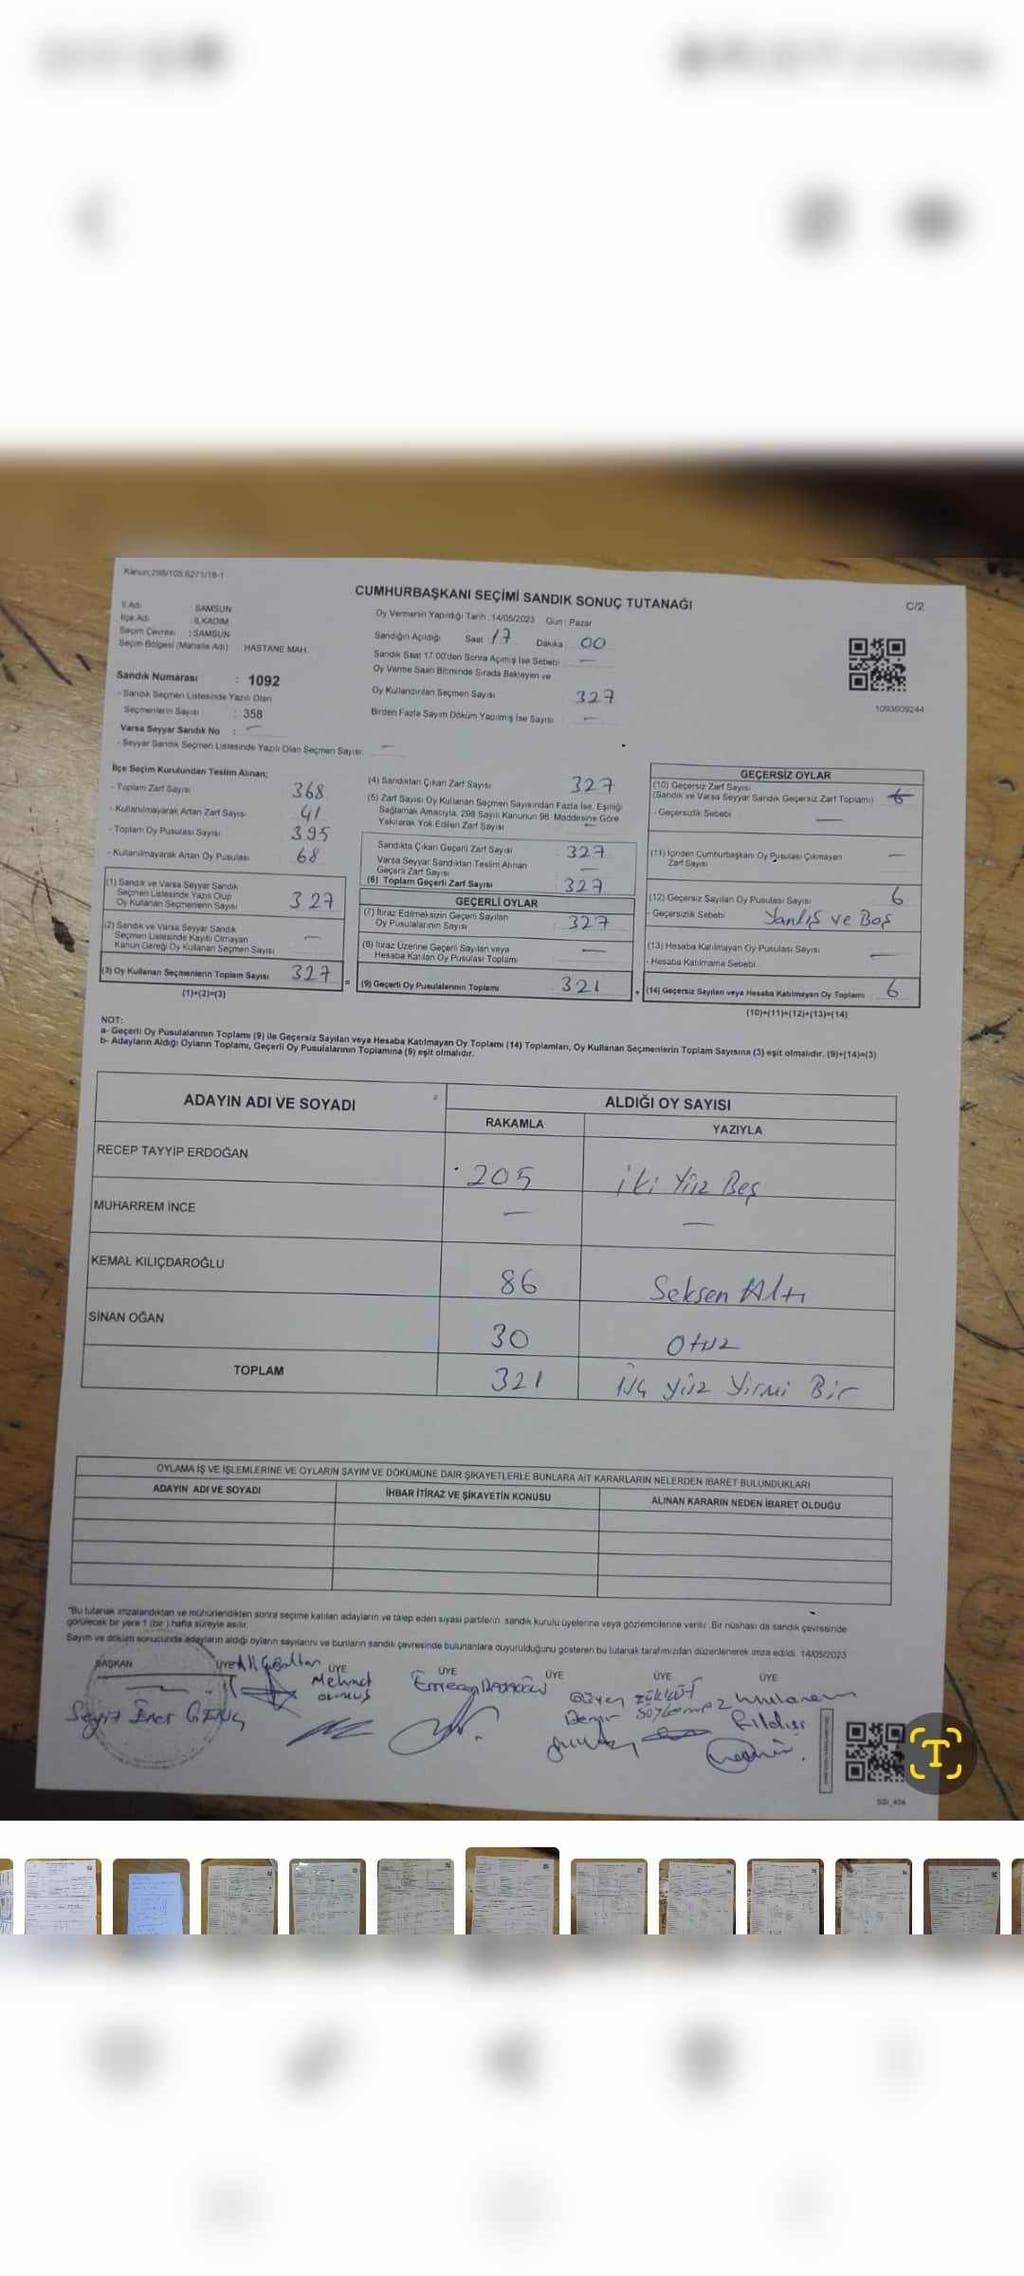 Kanun:298/105,6271/18-1
CUMHURBAŞKANI SEÇİMİ SANDIK SONUÇ TUTANAĞI
C/2
İl Adı : SAMSUN
İlçe Adı : İLKADIM
Seçim Çevresi : SAMSUN
Seçim Bölgesi (Mahalle Adı) HASTANE MAH.
Sandık Numarası : 1092
- Sandık Seçmen Listesinde Yazılı Olan
Seçmenlerin Sayısı : 358
Varsa Seyyar Sandık No : —
- Seyyar Sandık Seçmen Listesinde Yazılı Olan Seçmen Sayısı: —
Oy Vermenin Yapıldığı Tarih : 14/05/2023 Gün : Pazar
Sandığın Açıldığı Saat : 17 Dakika : 00
Sandık Saat 17:00'den Sonra Açılmış İse Sebebi —
Oy Verme Saati Bitiminde Sırada Bekleyen ve
Oy Kullandırılan Seçmen Sayısı 327
Birden Fazla Sayım Döküm Yapılmış İse Sayısı —
1093609244
İlçe Seçim Kurulundan Teslim Alınan;
- Toplam Zarf Sayısı 368
- Kullanılmayarak Artan Zarf Sayısı 41
- Toplam Oy Pusulası Sayısı 395
- Kullanılmayarak Artan Oy Pusulası 68
(1) Sandık ve Varsa Seyyar Sandık
Seçmen Listesinde Yazılı Olup
Oy Kullanan Seçmenlerin Sayısı 327
(2) Sandık ve Varsa Seyyar Sandık
Seçmen Listesinde Kayıtlı Olmayan
Kanun Gereği Oy Kullanan Seçmen Sayısı —
(3) Oy Kullanan Seçmenlerin Toplam Sayısı 327
(1)+(2)=(3)
(4) Sandıktan Çıkan Zarf Sayısı 327
(5) Zarf Sayısı Oy Kullanan Seçmen Sayısından Fazla İse, Eşitliği
Sağlamak Amacıyla, 298 Sayılı Kanunun 98. Maddesine Göre
Yakılarak Yok Edilen Zarf Sayısı —
Sandıkta Çıkan Geçerli Zarf Sayısı 327
Varsa Seyyar Sandıktan Teslim Alınan
Geçerli Zarf Sayısı —
(6) Toplam Geçerli Zarf Sayısı 327
GEÇERLİ OYLAR
(7) İtiraz Edilmeksizin Geçerli Sayılan
Oy Pusulalarının Sayısı 327
(8) İtiraz Üzerine Geçerli Sayılan veya
Hesaba Katılan Oy Pusulası Toplamı —
= (9) Geçerli Oy Pusulalarının Toplamı 321
GEÇERSİZ OYLAR
(10) Geçersiz Zarf Sayısı
(Sandık ve Varsa Seyyar Sandık Geçersiz Zarf Toplamı)
- Geçersizlik Sebebi —
(11) İçinden Cumhurbaşkanı Oy Pusulası Çıkmayan
Zarf Sayısı —
(12) Geçersiz Sayılan Oy Pusulası Sayısı 6
- Geçersizlik Sebebi Yanlış ve Boş
(13) Hesaba Katılmayan Oy Pusulası Sayısı —
- Hesaba Katılmama Sebebi
+ (14) Geçersiz Sayılan veya Hesaba Katılmayan Oy Toplamı 6
(10)+(11)+(12)+(13)=(14)
NOT:
a- Geçerli Oy Pusulalarının Toplamı (9) ile Geçersiz Sayılan veya Hesaba Katılmayan Oy Toplamı (14) Toplamları, Oy Kullanan Seçmenlerin Toplam Sayısına (3) eşit olmalıdır. (9)+(14)=(3)
b- Adayların Aldığı Oyların Toplamı, Geçerli Oy Pusulalarının Toplamına (9) eşit olmalıdır.
ADAYIN ADI VE SOYADI
ALDIĞI OY SAYISI
RAKAMLA YAZIYLA
RECEP TAYYİP ERDOĞAN 205 iki Yüz Beş
MUHARREM İNCE — —
KEMAL KILIÇDAROĞLU 86 Seksen Altı
SİNAN OĞAN 30 Otuz
TOPLAM 321 Üç Yüz Yirmi Bir
OYLAMA İŞ VE İŞLEMLERİNE VE OYLARIN SAYIM VE DÖKÜMÜNE DAİR ŞİKAYETLERLE BUNLARA AİT KARARLARIN NELERDEN İBARET BULUNDUKLARI
ADAYIN ADI VE SOYADI İHBAR İTİRAZ VE ŞİKAYETİN KONUSU ALINAN KARARIN NEDEN İBARET OLDUĞU
"Bu tutanak imzalandıktan ve mühürlendikten sonra seçime katılan adayların ve talep eden siyasi partilerin sandık kurulu üyelerine veya gözlemcilerine verilir. Bir nüshası da sandık çevresinde
görülecek bir yere 1 (bir) hafta süreyle asılır.
Sayım ve döküm sonucunda adayların aldığı oyların sayılarını ve bunların sandık çevresinde bulunanlara duyurulduğunu gösteren bu tutanak tarafımızdan düzenlenerek imza edildi. 14/05/2023
BAŞKAN ÜYE ÜYE ÜYE ÜYE ÜYE ÜYE
Mehmet
Seyit Ener
T